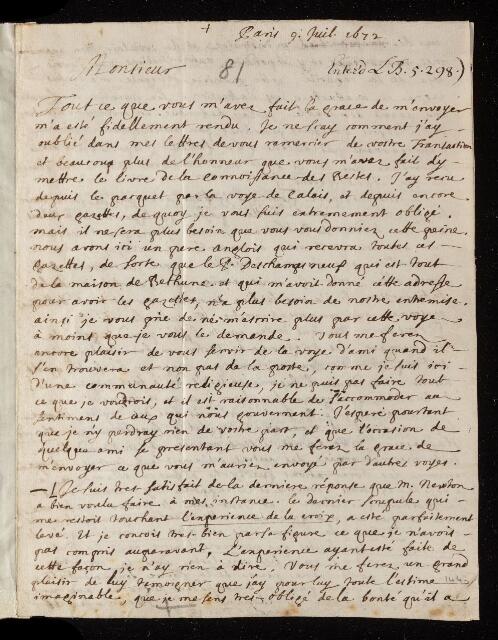 Paris 9. Juil. 1672
Monsieur 81 Enterd LB. 5. 298.)
Tout ce que vous m'avez fait la grace de m'envoyer
m'a esté fidellement rendu. Je ne sçay comment j'ay
oublié dans mes lettres de vous remercier de vostre Transaction
et beaucoup plus de l'honneur que vous m'avez fait d'y
mettre le livre de la connoissance des Bestes. J'ay receu
depuis le pacquet par la voye de Calais, et depuis encore
deux gazettes, de quoy je vous suis extremement obligé.
mais il ne sera plus besoin que vous vous donniez cette peine.
nous avons ici un pere anglois qui recevra toutes ces
gazettes, de sorte que le P. Deschamps neuf qui est tout
de la maison de Bethune et qui m'avoit donné cette adresse
pour avoir les gazettes, n'a plus besoin de nostre entremise.
ainsi je vous prie de ne m'ascrire plus par cette voye
à moins que je vous le demande. Vous me ferez
encore plaisir de vous servir de la voye d'ami quand il
s'en trouvera et non pas de la poste, comme je suis ici
d'une communauté religieuse, je ne puis pas faire tout
ce que je voudrois, et il est raisonnable de s'accommoder au
sentiment de ceux qui nous gouvernent. J'espere pourtant
que je n'y perdray rien de vostre part, et que l'occasion de
quelque ami se presentant vous me ferez la grace de
m'envoyer ce que vous m'auriez envoyé par d'autres voyes.
Je suis tres satisfait de la derniere réponse que M. Newton
a bien voulu faire à mes instance. le dernier scrupule qui
me restoit touchant l'experience de la croix, a esté parfaitement
levé. Et je conçois tres-bien par sa figure ce que je n'avois
pas compris auparavant. L'experience ayant esté faite de
cette façon, je n'ay rien à dire. Vous me ferez un grand
plaisir de luy temoigner que j'ay pour luy toute l'estime
imaginable, que je me sens tres-obligé de la bonté qu'il a